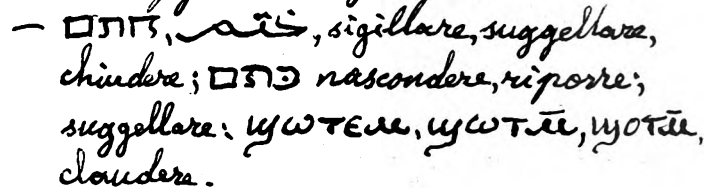 — חתם, ختم, sigillare, suggellare,
chiudere; כתם nascondere, riporre;
suggellare: ϣωτεμ, ϣωτⲙ̄, ϣοτⲙ̄,
claudere.